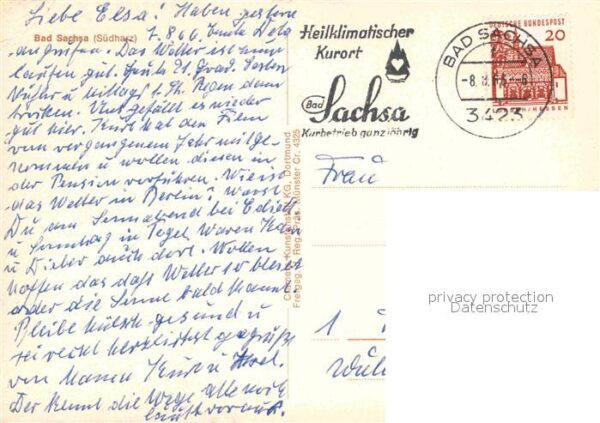 Liebe Elsa! Haben gestern
Bad Sachsa (Südharz)
7.8.66. Tante Dela
angerufen. Das Wetter ist nun
laufen gut. Heute 21 Grad. Gestern
Nachts u Mittags Regen dann
trocken. Uns gefällt es wieder
gut hier. Kurt hat den Film
vom vergangenem Jahr mitge-
nommen u wollen diesen in
der Pension vorführen. Wie ist
das Wetter in Berlin? Warst
Du am Sonnabend bei Edith
u Sonntag in Tegel. Waren
u Dieter auch dort. Wollen
hoffen das daß Wetter so bleibt
oder die Sonne bald kommt.
Bleibe hübsch gesund u
sei recht herzlichst gegrüßt
von Mama Kurt u
Der kennt die Wege alle noch
läuft voraus.
Cramers Kunstanstalt KG, Dortmund
Freigeg. Reg. Präs. Münster Cr. 4325
Heilklimatischer
Kurort
Bad
Sachsa
Kurbetrieb ganzjährig
BAD SACHSA
3423
DEUTSCHE BUNDESPOST
20
HESSEN
Frau
privacy protection
Datenschutz
1